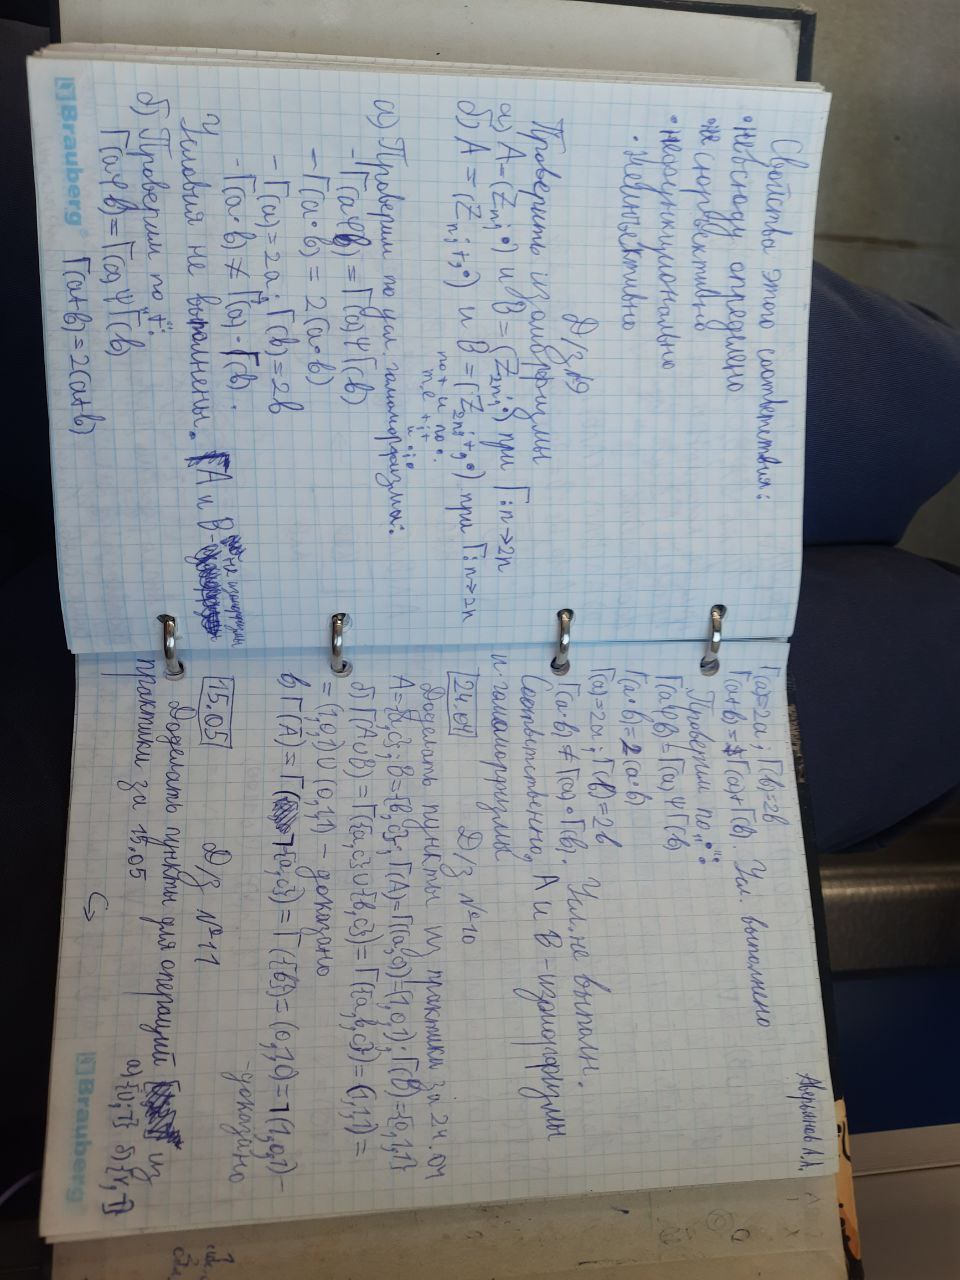 Свойства этого соответствия:
• невсюду определено
• не сюръективно
• нефункционально
• неинъективно
Д/з №9
Проверить изоморфизмы
а) A = (Zn; •) и B = (Z2n; •) при Г: n→2n
б) A = (Zn; +, •) и B = (Z2n; +, •) при Г: n→2n
по + и по •.
т.е +; +
и •; •
а) Проверим по усл. гомоморфизма:
- Г(aφb) = Г(a)ΨГ(b)
- Г(a•b) = 2(a•b)
- Г(a)=2a; Г(b)=2b
- Г(a•b) ≠ Г(a)•Г(b).
Условия не выполнены. A и B - не изоморфизмы
б) Проверим по „+":
Г(aφb)=Г(a)ΨГ(b)
Г(a+b)=2(a+b)
Brauberg
Аверьянов А.А.
Г(a)=2a; Г(b)=2b
Г(a+b)=Г(a)+Г(b). Усл. выполнено
Проверим по „•":
Г(aφb)=Г(a)ΨГ(b)
Г(a•b)=2(a•b)
Г(a)=2a; Г(b)=2b
Г(a•b) ≠ Г(a)•Г(b). Усл. не выполн.
Соответственно, A и B - изоморфизмы
и гомоморфизмы
24.04 Д/з №10
Доделать пункты из практики за 24.04
A={a,c}; B={b,c}; Г(A)=Г((a,c))=(1,0,1); Г(B)={0,1,1}
б) Г(A∪B) = Г({a,c}∪{b,c})= Г({a,b,c})= (1,1,1) =
= (1,0,1)∪(0,1,1) - доказано
в) Г(Ā) = Г(¬{a,c}) = Г({b}) = (0,1,0) = ¬(1,0,1) -
- доказано
15.05 Д/з №11
Доделать пункты для операций из
практики за 15.05 а) {∪; ¯} б) {∨, ¯}
Brauberg